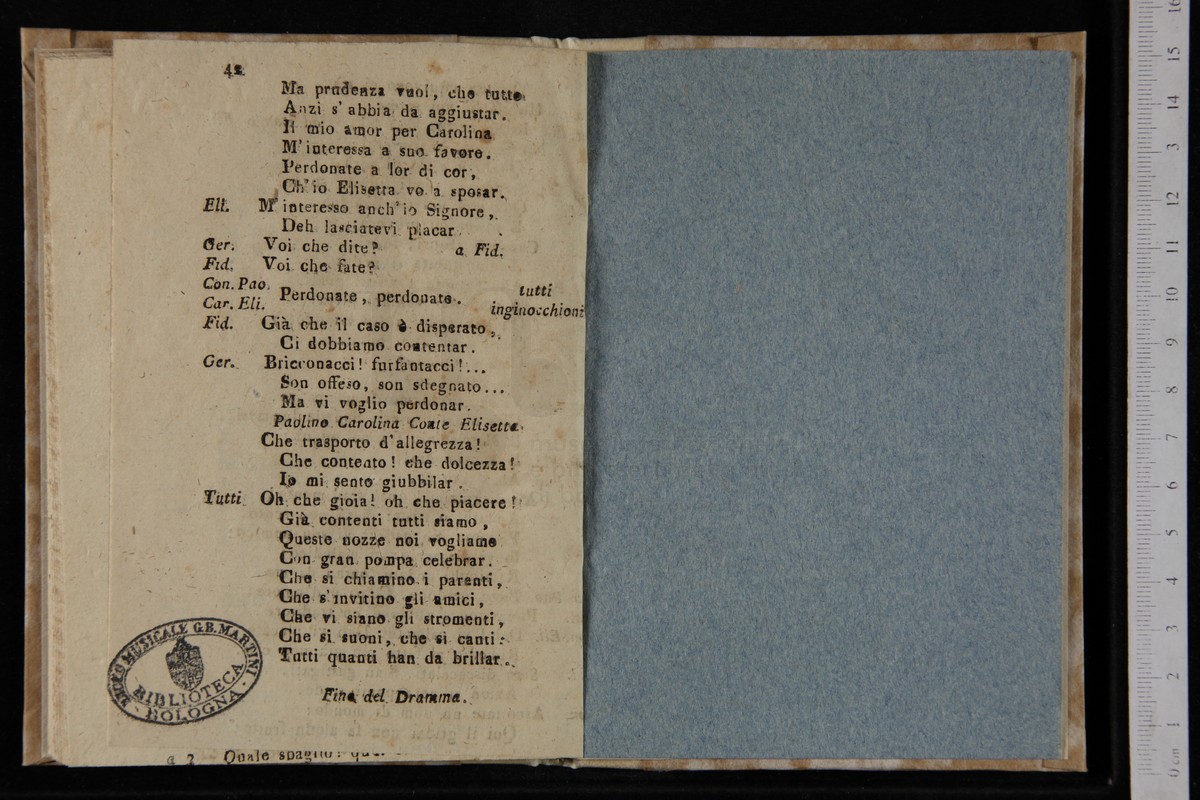 42
Ma prudenza vuol, che tutto
Anzi s'abbia da aggiustar.
Il mio amor per Carolina
M'interessa a suo favore.
Perdonate a lor di cor,
Ch'io Elisetta vo a sposar.
Eli. M'interesso anch'io Signore,
Deh lasciatevi placar.
Ger. Voi che dite? a Fid.
Fid. Voi che fate?
Con. Pao.
Car. Eli. Perdonate, perdonate. tutti inginocchioni
Fid. Già che il caso è disperato,
Ci dobbiamo contentar.
Ger. Bricconacci! furfantacci!...
Son offeso, son sdegnato...
Ma vi voglio perdonar.
Paolino Carolina Conte Elisetta.
Che trasporto d'allegrezza!
Che contento! che dolcezza!
Io mi sento giubbilar.
Tutti Oh che gioia! oh che piacere!
Già contenti tutti siamo,
Queste nozze noi vogliamo
Con gran pompa celebrar.
Che si chiamino i parenti,
Che s'invitino gli amici,
Che vi siano gli stromenti,
Che si suoni, che si canti:
Tutti quanti han da brillar.
Fine del Dramma.
LICEO MUSICALE G.B. MARTINI
BIBLIOTECA
BOLOGNA
Quale
0 cm 1 2 3 4 5 6 7 8 9 10 11 12 13 14 15 16